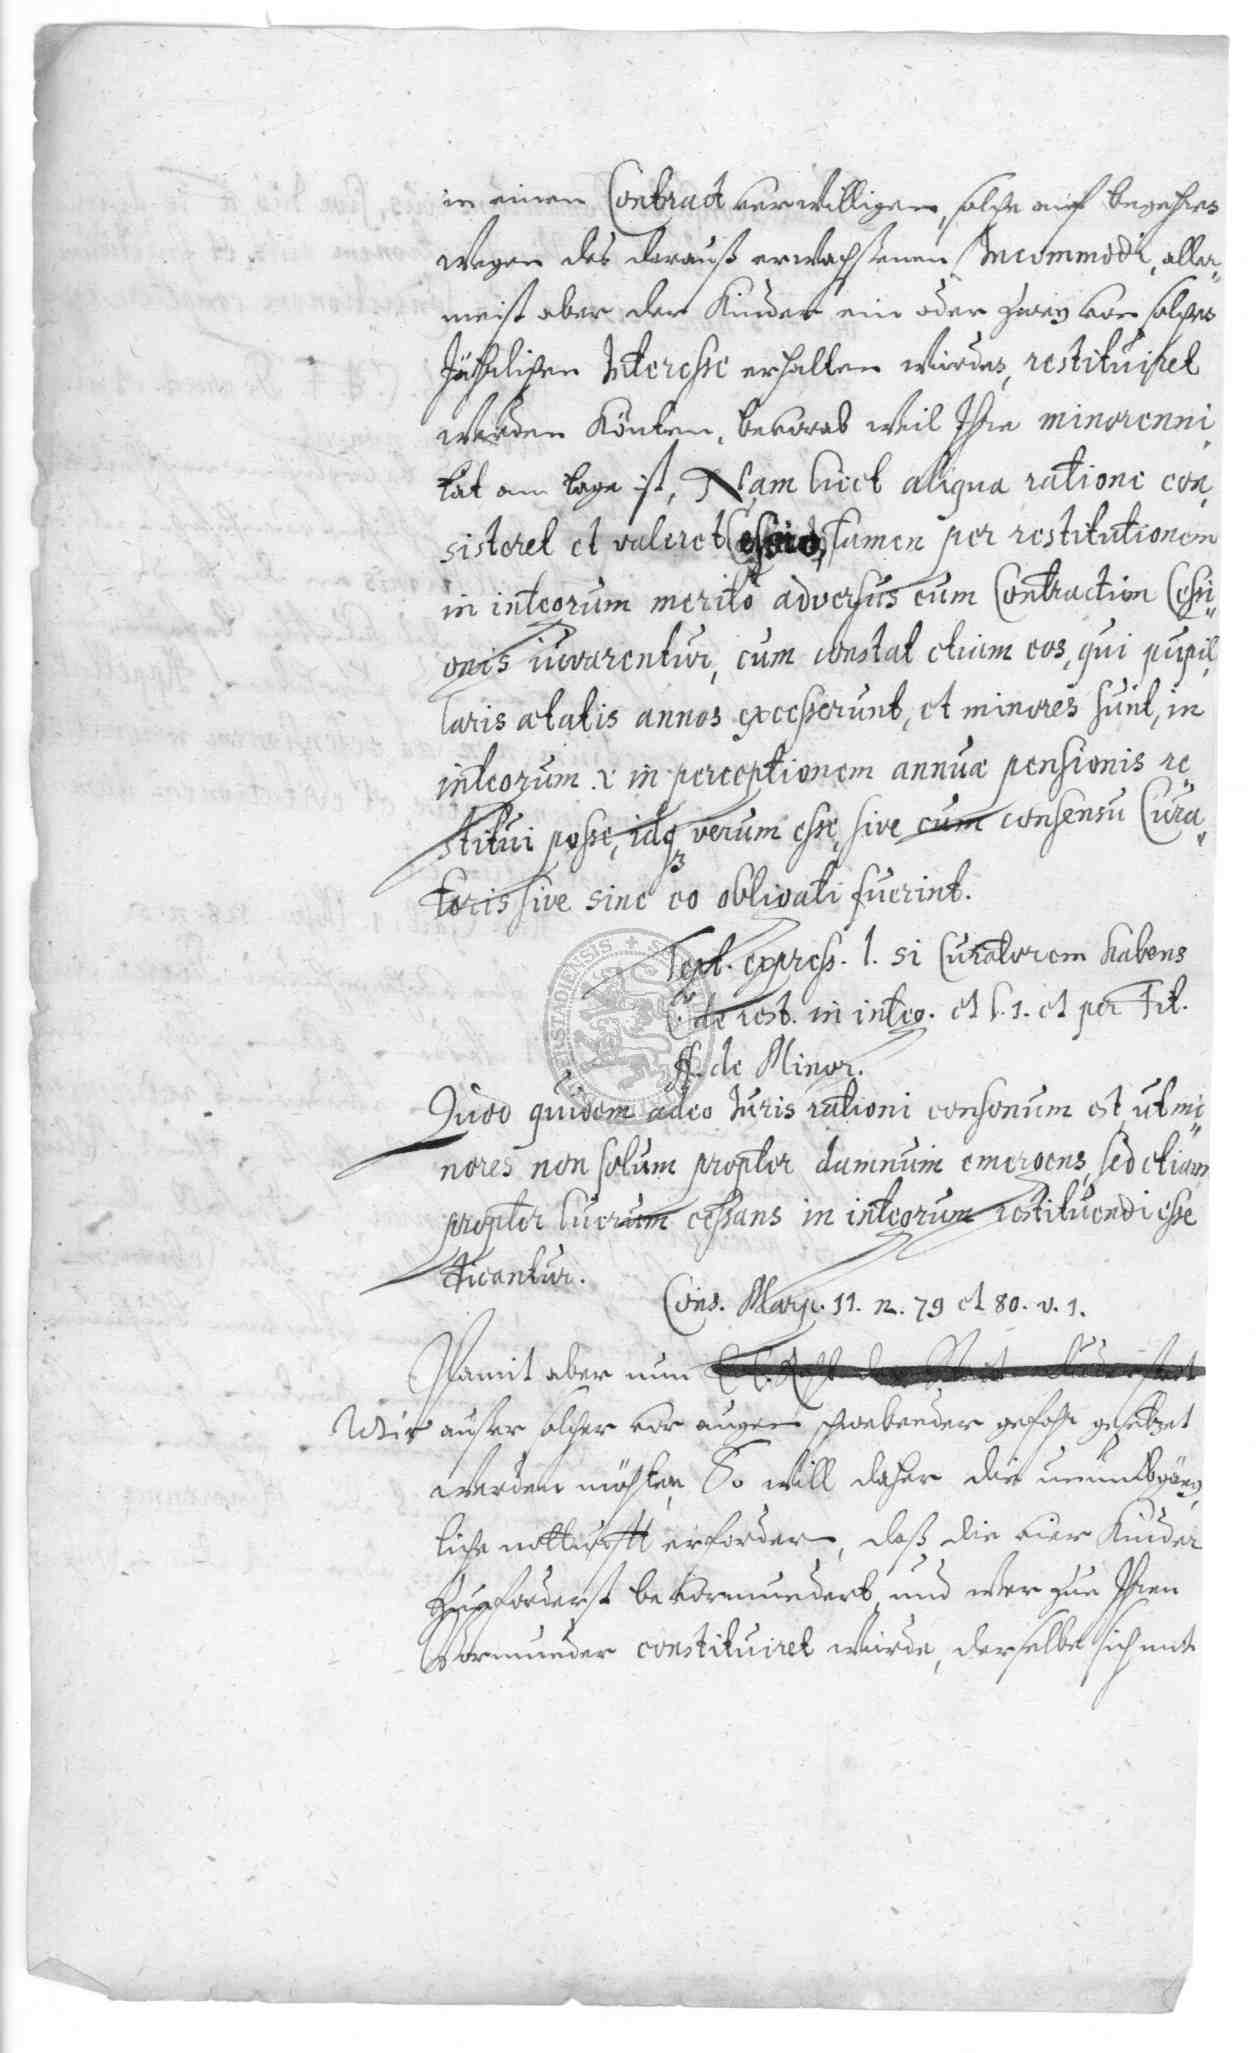 in einen Contract verwilligen, solche auf begehres
wegen des darauß erwachsenen Incommodi, aller„
meist aber der Kinder ein oder zwey von solches
Jährlichen Interesse erhalten würdes, restituiret
werden könten, bevorab weil Ihre minorenni„
tät am tage ist, Nam licet aliqua ratione con„
sisteret et valeret Cessio, tamen per restitutionem
in integrum merito adversus eum Contractum Cessi„
onis iuvarentur, cum constat etiam eos, qui pupil„
laris ætatis annos excesserunt, et minores sunt, in
integrum & in perceptionem annuæ pensionis re„
stitui posse, idq₃ verum esse, sive cum consensu Cura„
toris sive sine eo obligati fuerint.
Text. express. l. si Curatorem habens
C. de rest. in integ. et l. 1. et per Tit.
ff. de Minor.
Quod quidem adeo Iuris rationi consonum est, ut mi„
nores non solum propter damnum emergens, sed etiam
propter lucrum cessans in integrum restituendi esse
dicantur.
Cons. Marp. 11. n. 79 et 80. v. 1.
Damit aber nun
Wir außer solcher vor augen schwebender gefahr gesetzet
werden möchten, So will daher die unumbgäng„
liche notturfft erfordern, daß die vier Kinder
zuforderst bevormundert, und wer zue Ihren
Vormunder constituiret würde, derselbe sich mit